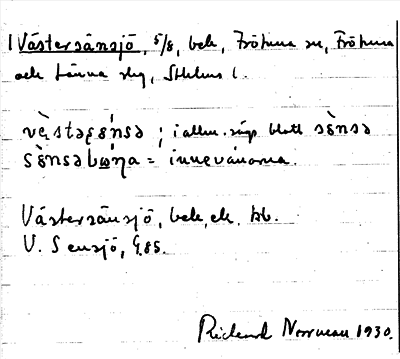 Västersänsjö, 5/8, bek, Frötuna sn, Frötuna
och Länna skg, Sthlms l.
væ̀stəʂɛ́nsə ; i allm. sägs blott sɛ̀nsə
sɛ̀nsəbωŋa = innevånarna.
Västersänsjö, bek, ek. kb.
V. Sensjö, G 85.
Richard Norrman 1930.